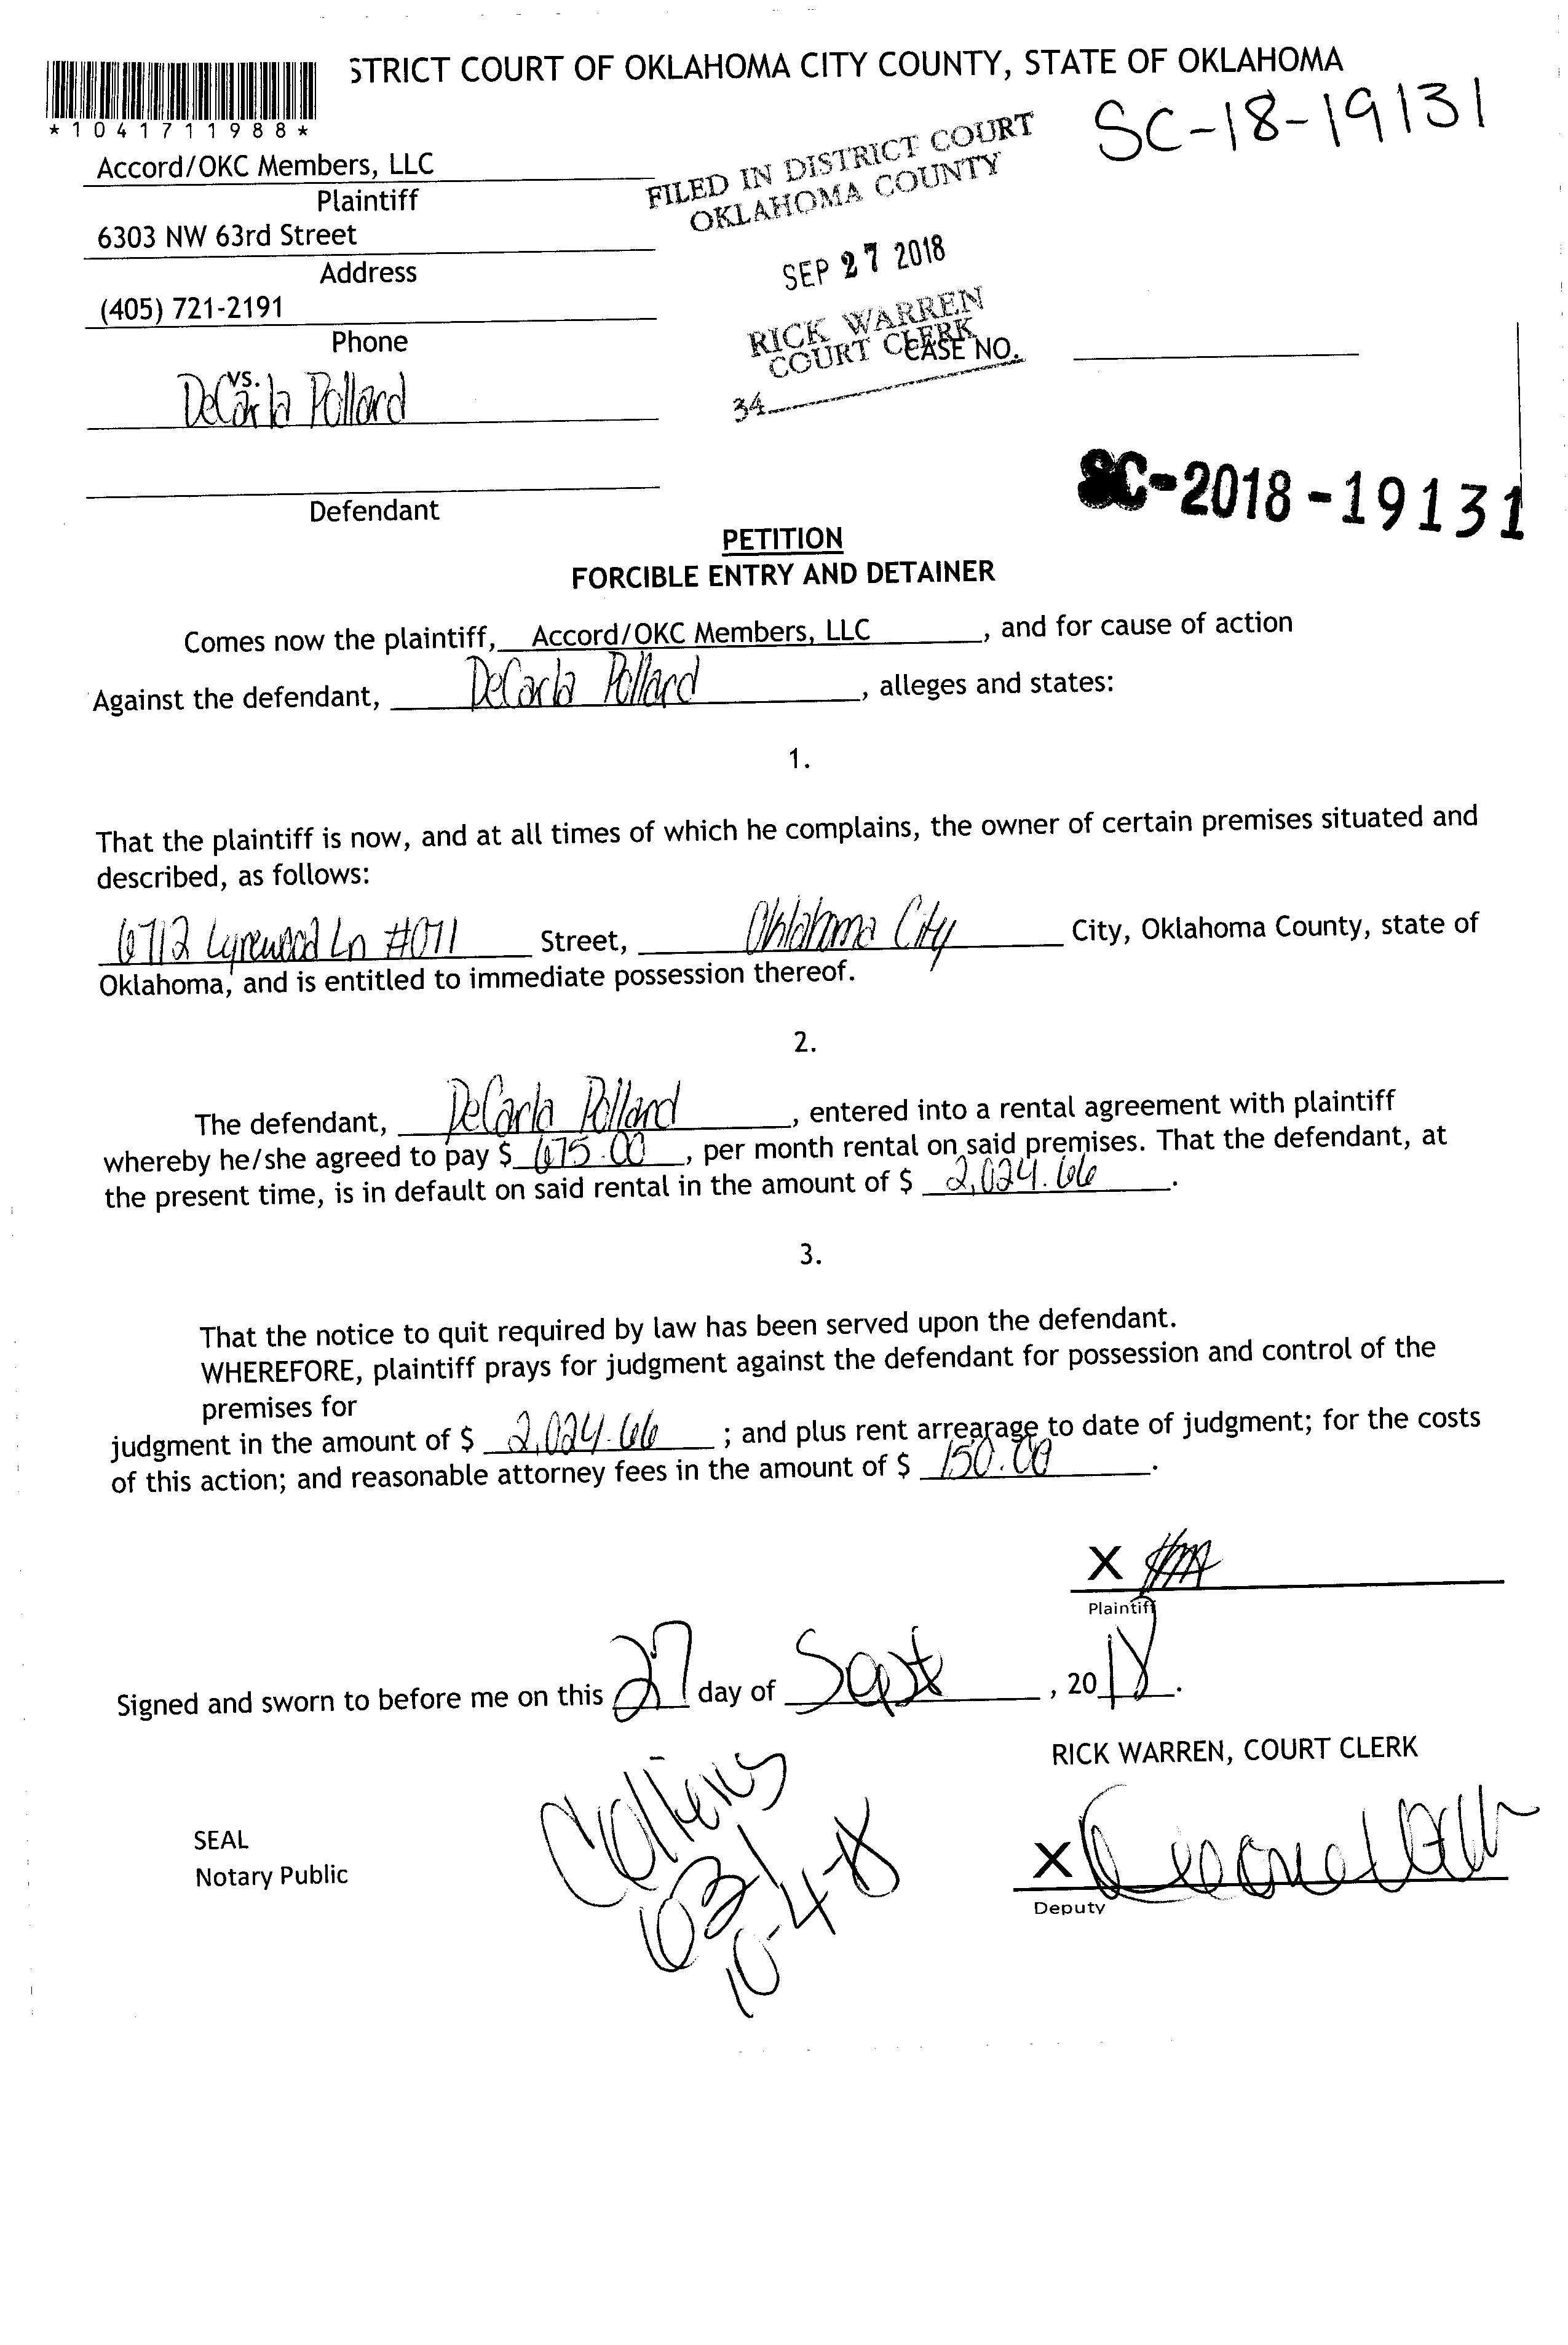 STRICT COURT OF OKLAHOMA CITY COUNTY, STATE OF OKLAHOMA
*1041711988*
SC-18-19131
Accord/OKC Members, LLC
Plaintiff
6303 NW 63rd Street
Address
(405) 721-2191
Phone
vs.
DeCarla Pollard
Defendant
FILED IN DISTRICT COURT
OKLAHOMA COUNTY
SEP 27 2018
RICK WARREN
COURT CLERK
34
CASE NO.
SC-2018-19131
PETITION
FORCIBLE ENTRY AND DETAINER
Comes now the plaintiff, Accord/OKC Members, LLC, and for cause of action
Against the defendant, DeCarla Pollard, alleges and states:
1.
That the plaintiff is now, and at all times of which he complains, the owner of certain premises situated and
described, as follows:
6712 Lyrewood Ln #071 Street, Oklahoma City City, Oklahoma County, state of
Oklahoma, and is entitled to immediate possession thereof.
2.
The defendant, DeCarla Pollard, entered into a rental agreement with plaintiff
whereby he/she agreed to pay $ 675.00, per month rental on said premises. That the defendant, at
the present time, is in default on said rental in the amount of $ 2,024.66.
3.
That the notice to quit required by law has been served upon the defendant.
WHEREFORE, plaintiff prays for judgment against the defendant for possession and control of the
premises for
judgment in the amount of $ 2,024.66; and plus rent arrearage to date of judgment; for the costs
of this action; and reasonable attorney fees in the amount of $ 150.00.
X
Plaintiff
Signed and sworn to before me on this 27 day of Sept, 2018.
RICK WARREN, COURT CLERK
SEAL
Notary Public
X
Deputy
10-4-18